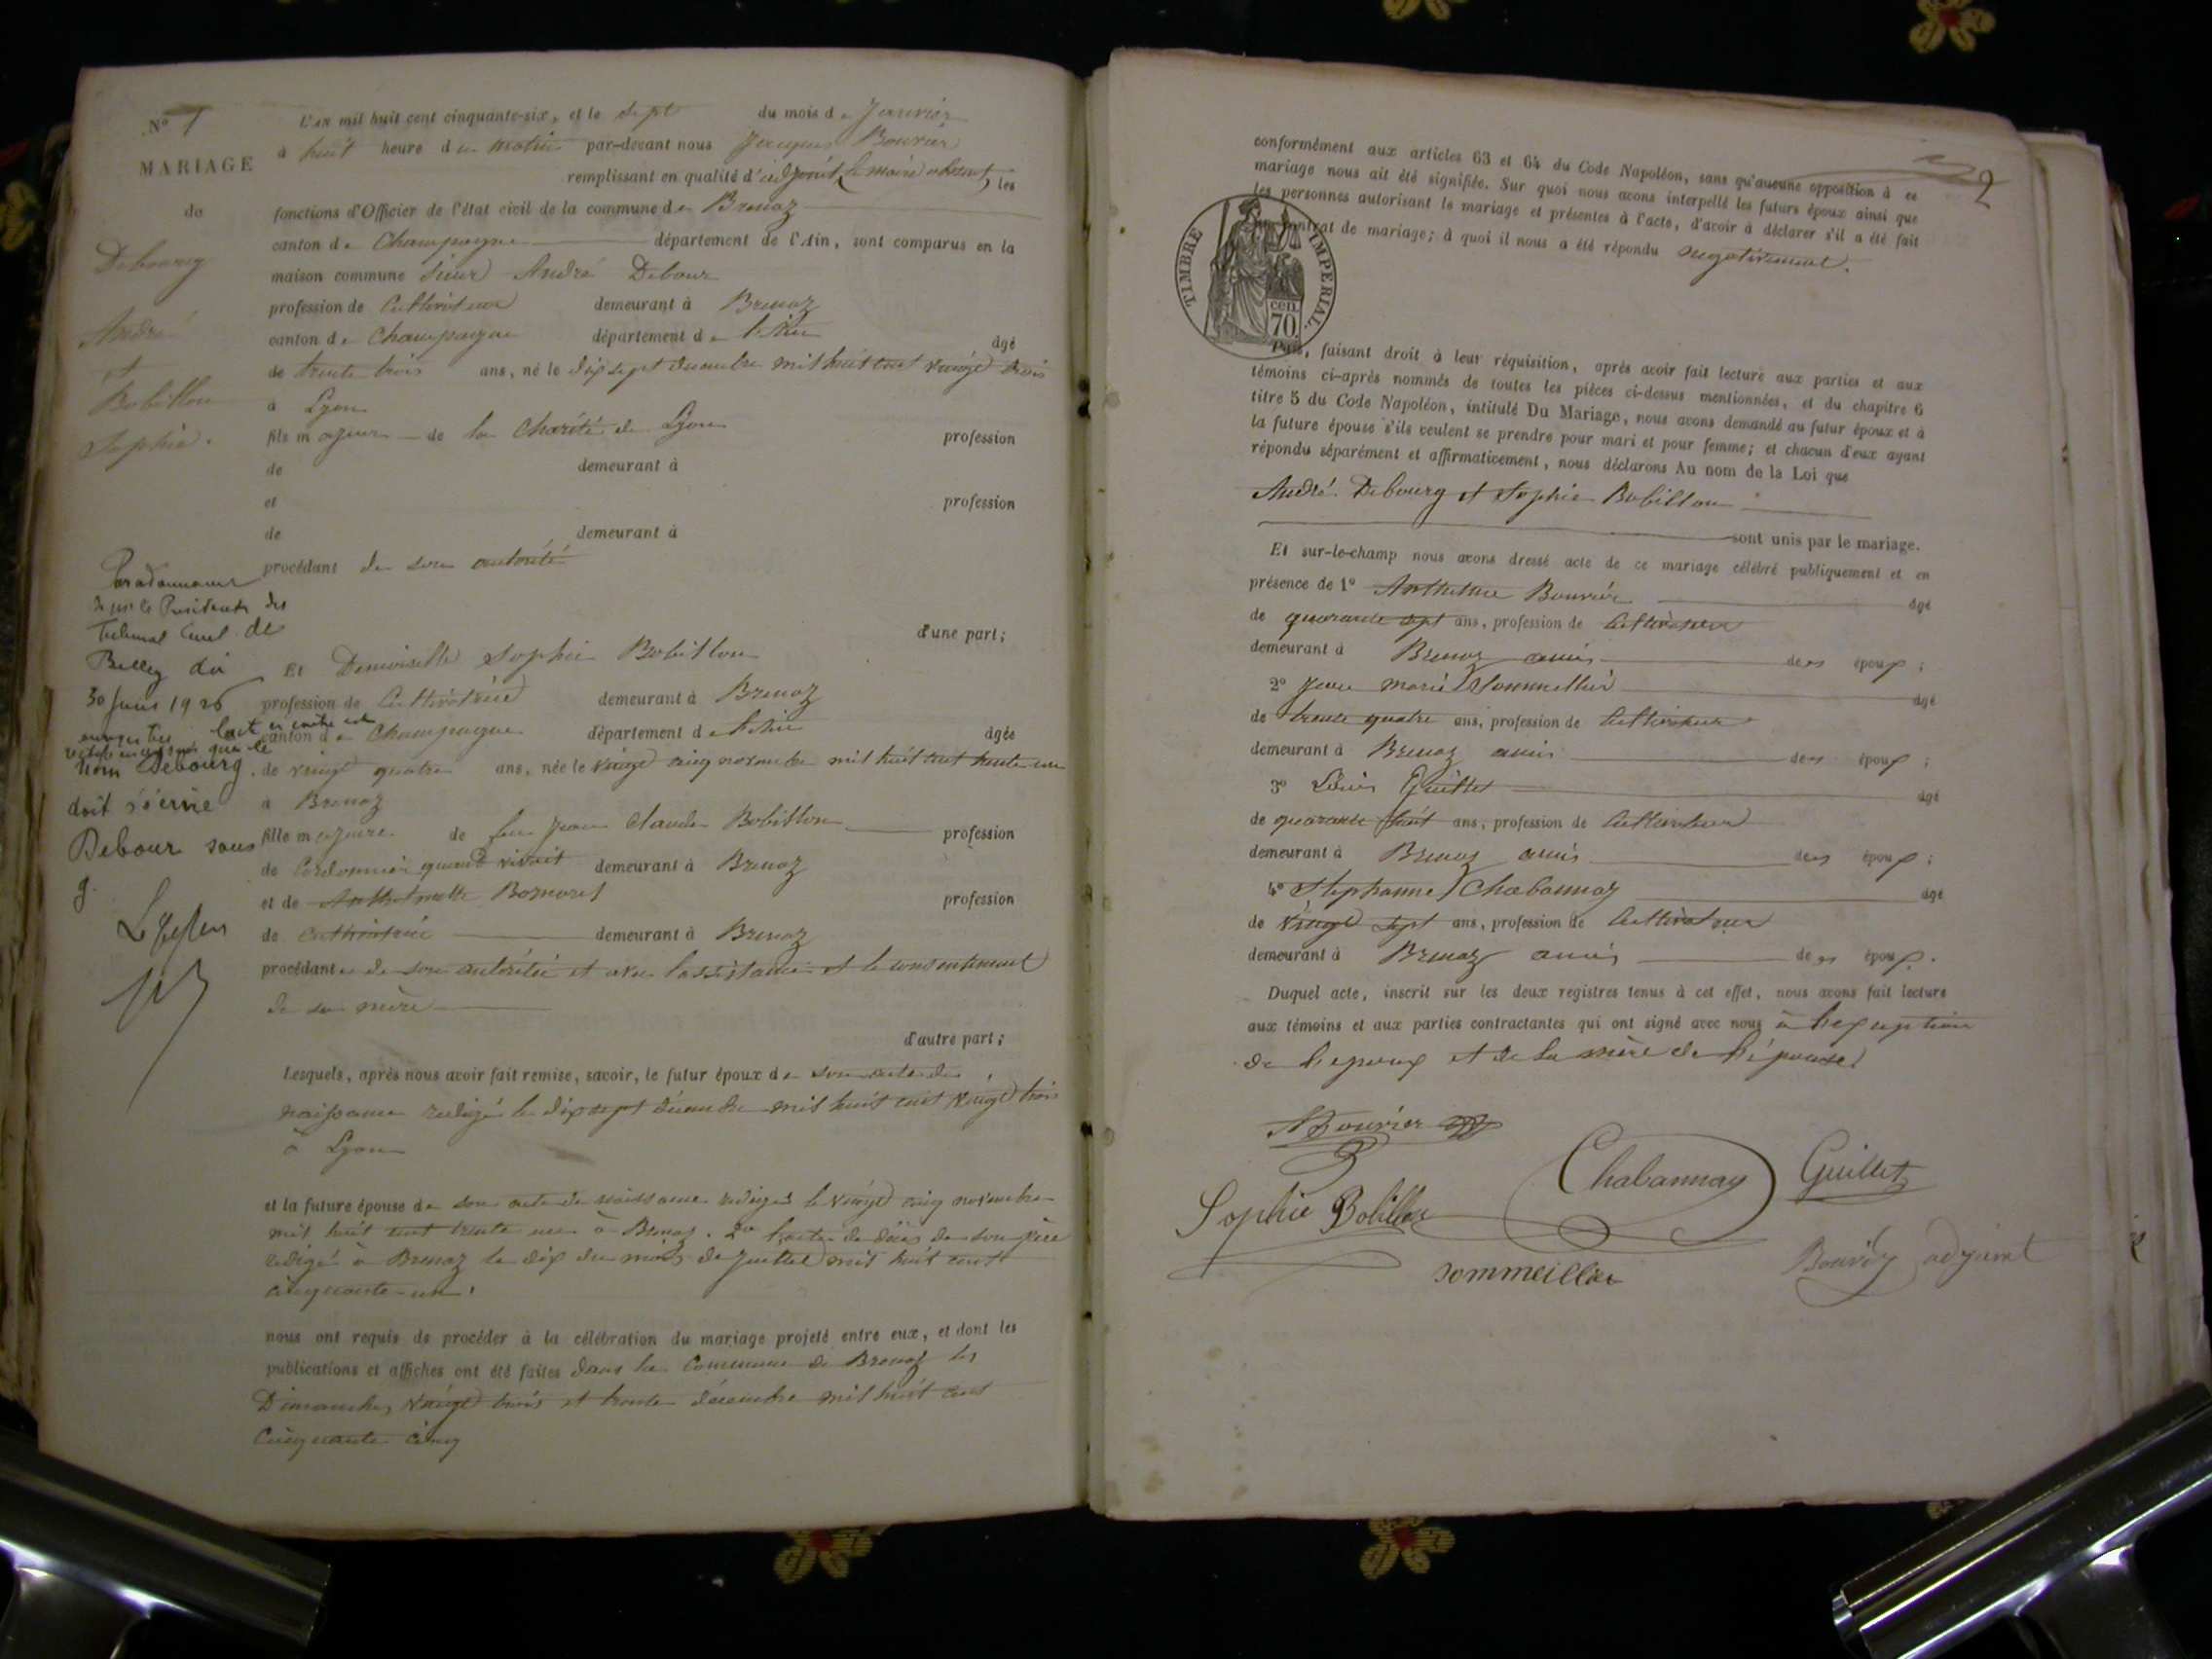 N° 1
MARIAGE
de
Debourg
André
et
Bobillon
Sophie.
L'an mil huit cent cinquante-six, et le sept du mois de Janvier
à huit heure du matin par-devant nous Jacques Bouvier
remplissant en qualité d'adjoint, le maire absent, les
fonctions d'Officier de l'état civil de la commune de Brenaz
canton de Champagne département de l'Ain, sont comparus en la
maison commune Sieur André Debour
profession de Cultivateur demeurant à Brenaz
canton de Champagne département de l'Ain âgé
de trente trois ans, né le dix sept décembre mil huit cent vingt trois
à Lyon
fils majeur de la Charité de Lyon profession
de demeurant à
et profession
de demeurant à
procédant de son autorité
d'une part;
Par ordonnance
de le Président du
Tribunal Civil de
Belley du
30 Juin 1926
l'acte ci contre est
rectifié en ce sens que le
nom Debourg
doit s'écrire
Debour sans
g.
Et Demoiselle Sophie Bobillon
profession de Cultivatrice demeurant à Brenaz
canton de Champagne département de l'Ain âgée
de vingt quatre ans, née le vingt cinq novembre mil huit cent trente un
à Brenaz
fille majeure de feu Jean Claude Bobillon profession
de Cordonnier quand vivait demeurant à Brenaz
et de Anthelmette profession
de Cultivatrice demeurant à Brenaz
procédant de son autorité et avec l'assistance et le consentement
de sa mère
d'autre part;
Lesquels, après nous avoir fait remise, savoir, le futur époux de son acte de
naissance rédigé le dix sept décembre mil huit cent vingt trois
à Lyon
et la future épouse de son acte de naissance rédigé le vingt cinq novembre
mil huit cent trente un à Brenaz. 2° l'acte de décès de son père
rédigé à Brenaz le dix du mois de juillet mil huit cent
cinquante-un.
nous ont requis de procéder à la célébration du mariage projeté entre eux, et dont les
publications et affiches ont été faites dans la Commune de Brenaz les
Dimanches vingt trois et trente décembre mil huit cent
cinquante cinq
2
conformément aux articles 63 et 64 du Code Napoléon, sans qu'aucune opposition à ce
mariage nous ait été signifiée. Sur quoi nous avons interpellé les futurs époux ainsi que
les personnes autorisant le mariage et présentes à l'acte, d'avoir à déclarer s'il a été fait
un contrat de mariage; à quoi il nous a été répondu négativement.
TIMBRE IMPERIAL.
cen.
70
Puis, faisant droit à leur réquisition, après avoir fait lecture aux parties et aux
témoins ci-après nommés de toutes les pièces ci-dessus mentionnées, et du chapitre 6
titre 5 du Code Napoléon, intitulé Du Mariage, nous avons demandé au futur époux et à
la future épouse s'ils veulent se prendre pour mari et pour femme; et chacun d'eux ayant
répondu séparément et affirmativement, nous déclarons Au nom de la Loi que
André Debourg et Sophie Bobillon
sont unis par le mariage.
Et sur-le-champ nous avons dressé acte de ce mariage célébré publiquement et en
présence de 1° Anthelme Bouvier âgé
de quarante sept ans, profession de Cultivateur
demeurant à Brenaz amis des époux;
2° Jean marie Sommellier âgé
de trente quatre ans, profession de Cultivateur
demeurant à Brenaz amis des époux;
3° Louis Guillet âgé
de quarante huit ans, profession de Cultivateur
demeurant à Brenaz amis des époux;
4° Stephanne Chabannay âgé
de vingt sept ans, profession de Cultivateur
demeurant à Brenaz amis des époux.
Duquel acte, inscrit sur les deux registres tenus à cet effet, nous avons fait lecture
aux témoins et aux parties contractantes qui ont signé avec nous à l'exception
de l'époux et de la mère de l'épouse.
A Bouvier
Chabannay Guillet
Sophie Bobillon
Sommeillier
Bouvier adjoint